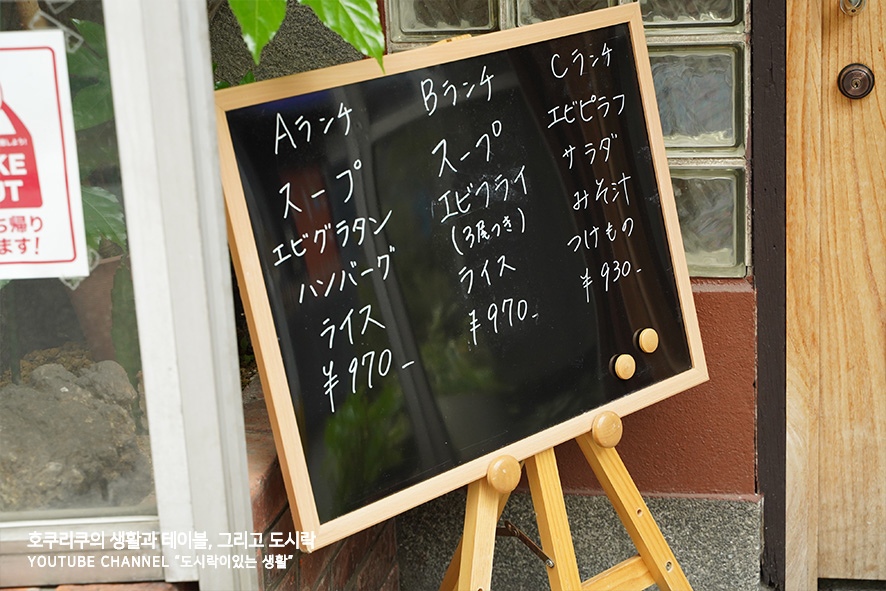 しよう!
KE
UT
ち帰り
ます!
Aランチ
スープ
エビグラタン
ハンバーグ
ライス
¥970-
Bランチ
スープ
エビフライ
(3尾つき)
ライス
¥970-
Cランチ
エビピラフ
サラダ
みそ汁
つけもの
¥930-
호쿠리쿠의 생활과 테이블, 그리고 도시락
YOUTUBE CHANNEL "도시락이있는 생활"